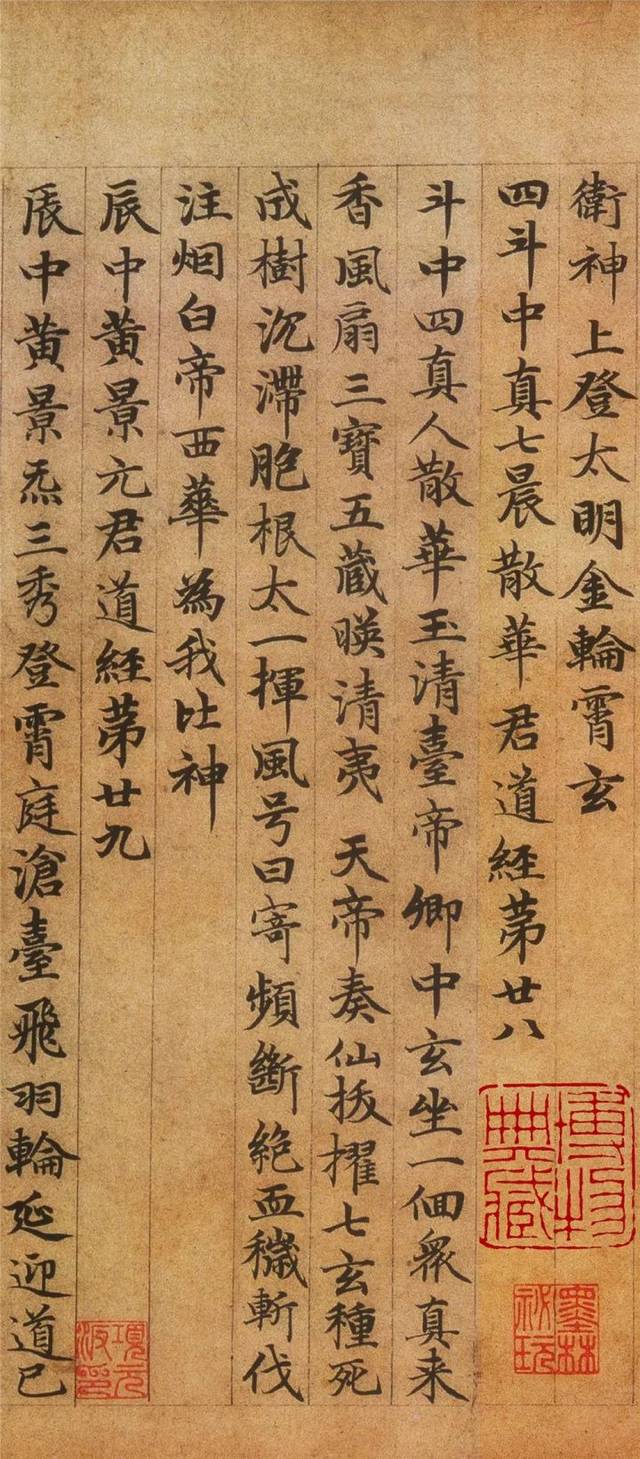 衛神上登太明金輪霄玄
四斗中真七晨散華君道經第廿八
斗中四真人散華玉清臺帝卿中玄坐一佪衆真来
香風扇三寶五蔵暎清夷 天帝奏仙拔擢七玄種死
成樹沉滯胞根太一揮風号曰寄頻斷絶血穢斬伐
注烟白帝西華為我比神
辰中黄景元君道經第廿九
辰中黄景炁三秀登霄庭滄臺飛羽輪延迎道已
博物
典藏
墨林
祕玩
項元
汴印